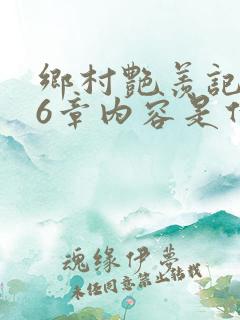 鄉村艷羨記
6章內容是什
魂缘伊夢
未经同意禁止转载